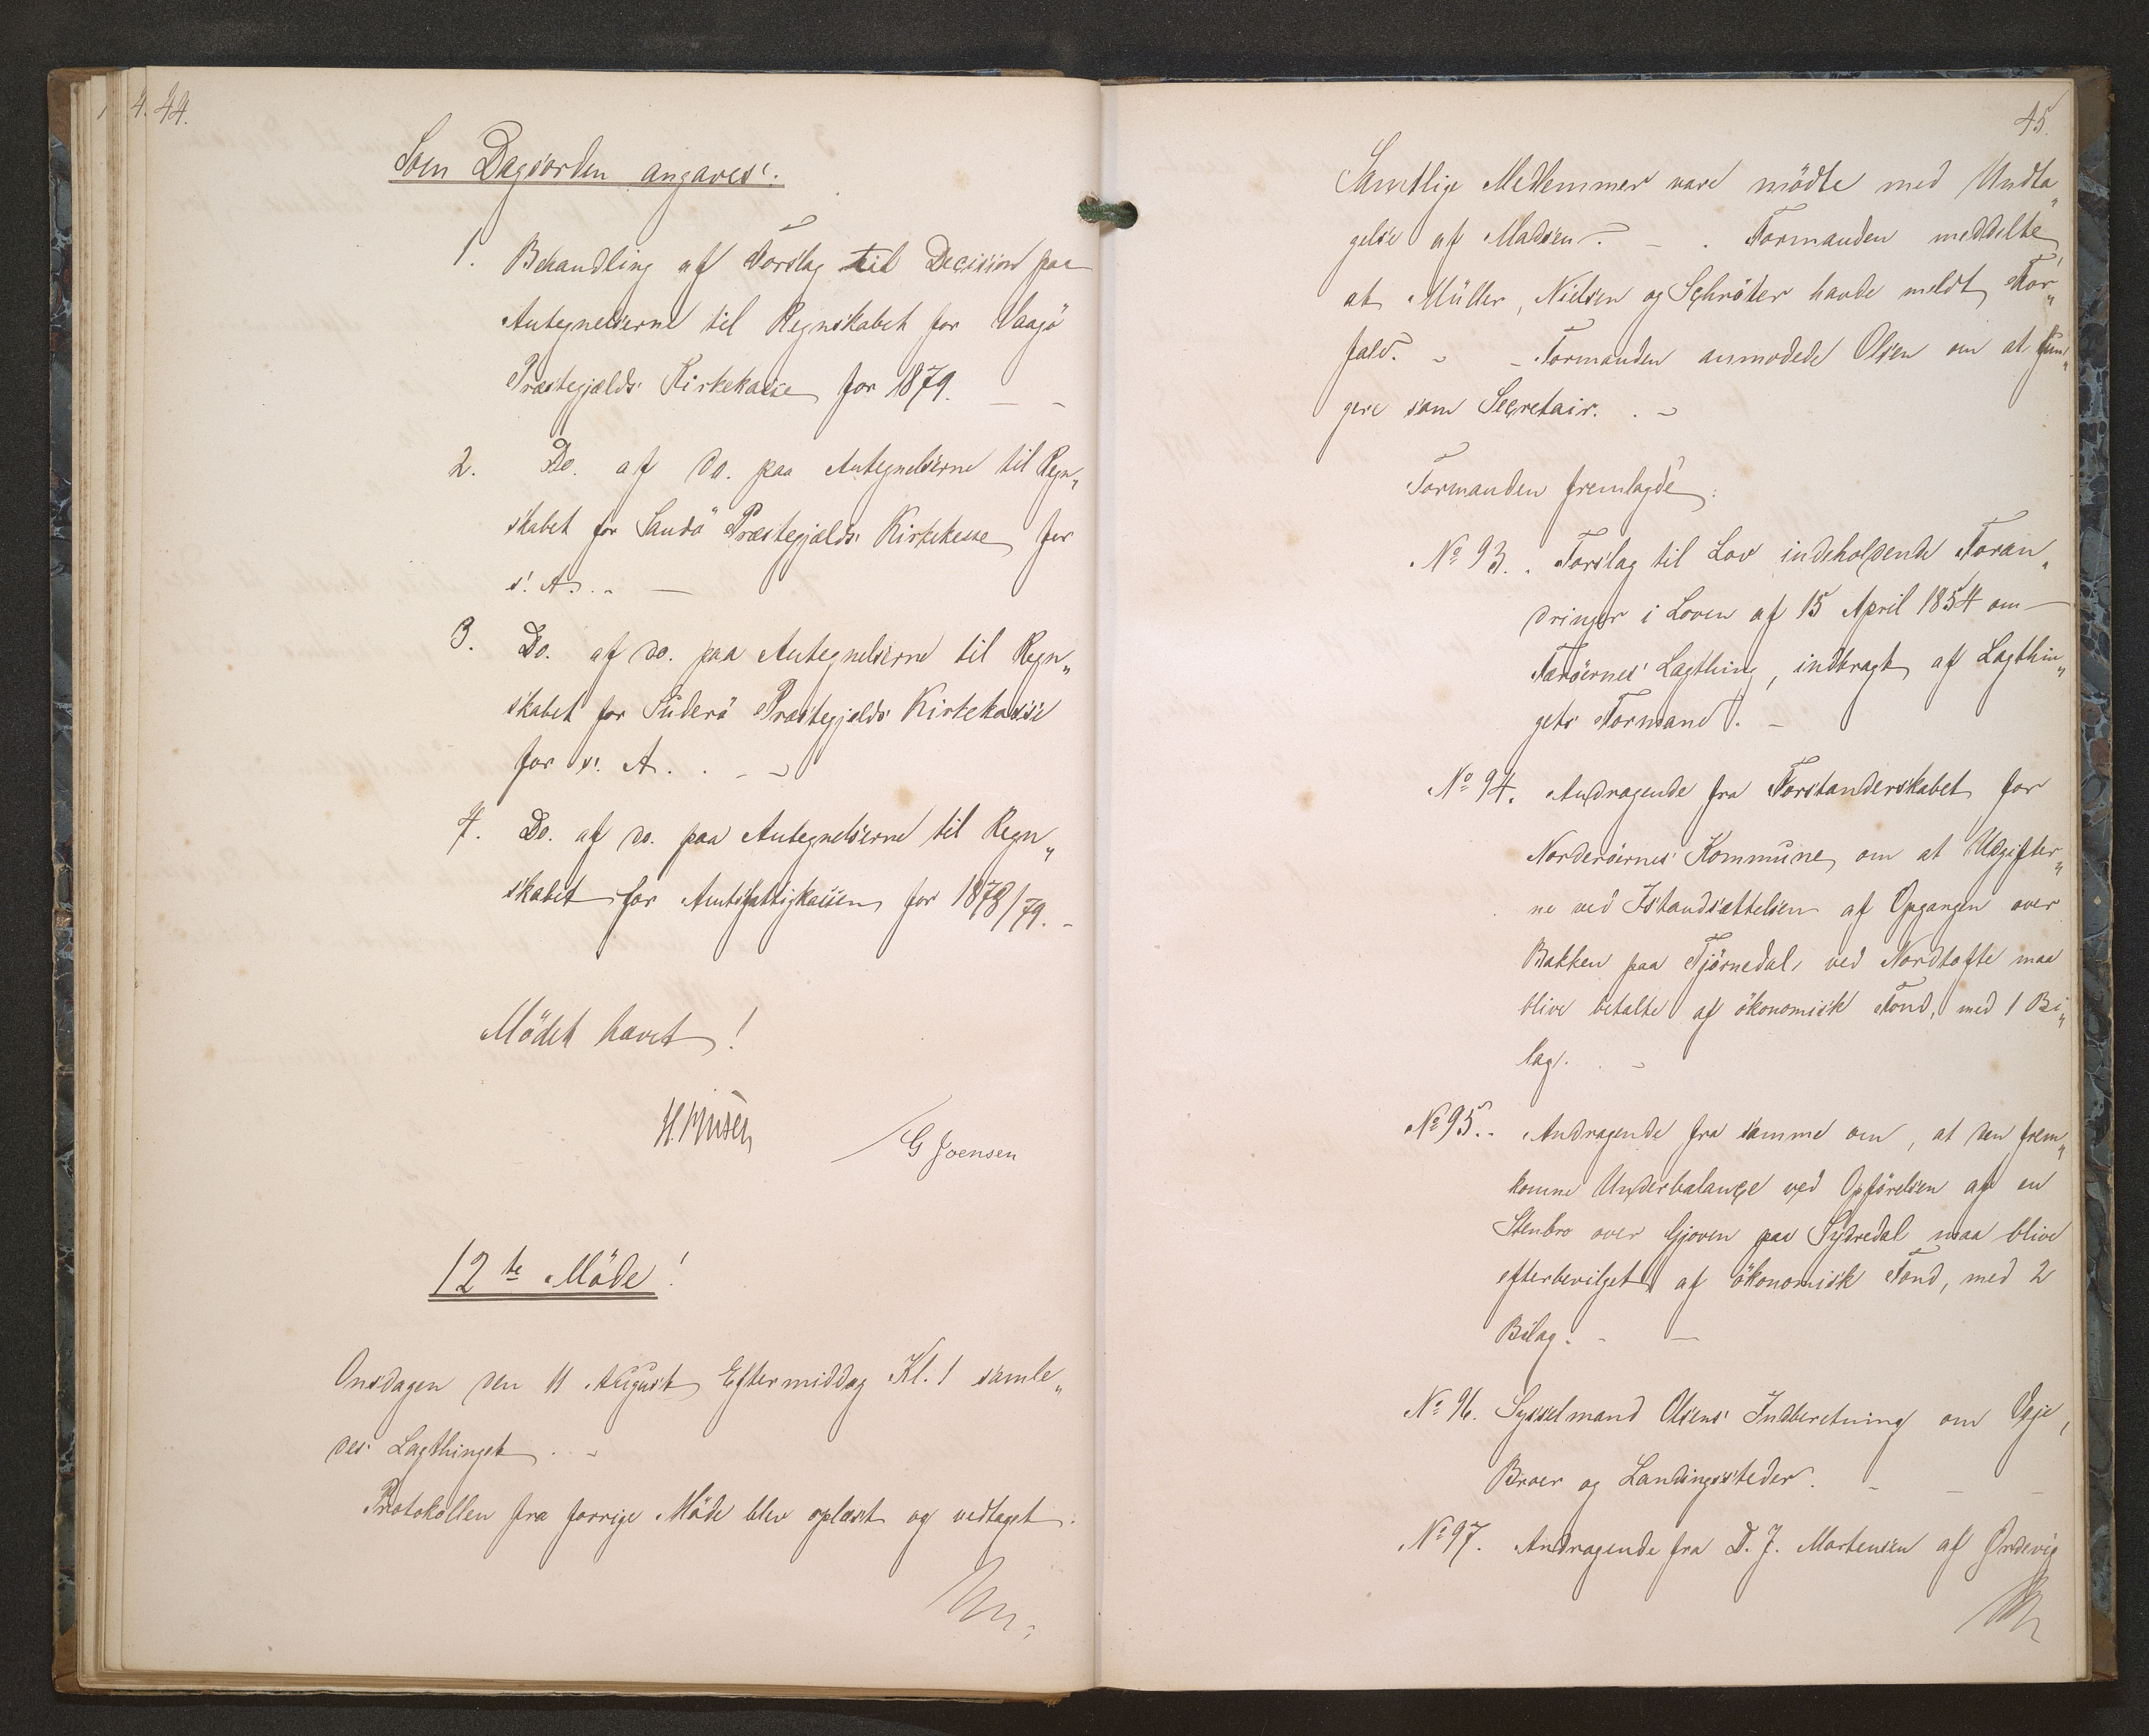 44.
Som Dagsorden angaves:
1. Behandling af Forslag til Decision paa
Antegnelserne til Regnskabet for Vaagö
Præstegjælds Kirkekasse for 1879. — -
2. Do. af do. paa Antegnelserne til Regn„
skabet for Sandö Præstegjælds Kirkekasse for
s. A. . —
3. Do. af do. paa Antegnelserne til Regn„
skabet for Suderö Præstegjælds Kirkekasse
for s. A. . - -
4. Do. af do. paa Antegnelserne til Regn„
skabet for Amtsfattigkassen for 1878/79. -
Mödet hævet!
G Joensen
12te Möde!
Onsdagen den 11 August Eftermiddag Kl. 1 samle„
des Lagthinget. -
Protokollen fra forrige Möde blev oplæst og vedtaget.
45.
Samtlige Medlemmer vare mödte med Undta„
gelse af Madsen. - . Formanden meddelte,
at Müller, Nielsen og Schröter havde meldt For„
fald. - - Formanden anmodede Olsen om at fun„
gere som Secretair. . -
Formanden fremlagde:
No 93. . Forslag til Lov indeholdende Foran„
dringer i Loven af 15 April 1854 om —
Færöernes Lagthing, indbragt af Lagthin„
gets Formand. -
No 94. Andragende fra Forstanderskabet for
Norderöernes Kommune, om at Udgifter„
ne ved Istandsættelsen af Opgangen over
Bakken paa Tjörnedal, ved Nordtofte maa
blive betalte af ökonomisk Fond, med 1 Bi„
lag. . -
No 95. . Andragende fra samme om, at den frem„
komne Underbalance ved Opförelsen af en
Stenbro over Gjoven paa Sydredal maa blive
efterbevilget af ökonomisk Fond, med 2
Bilag. - —
No 96. Sysselmand Olsens Indberetning om Veje,
Broer og Landingssteder. - - -
No 97. Andragende fra D. J. Mortensen af Ördevig